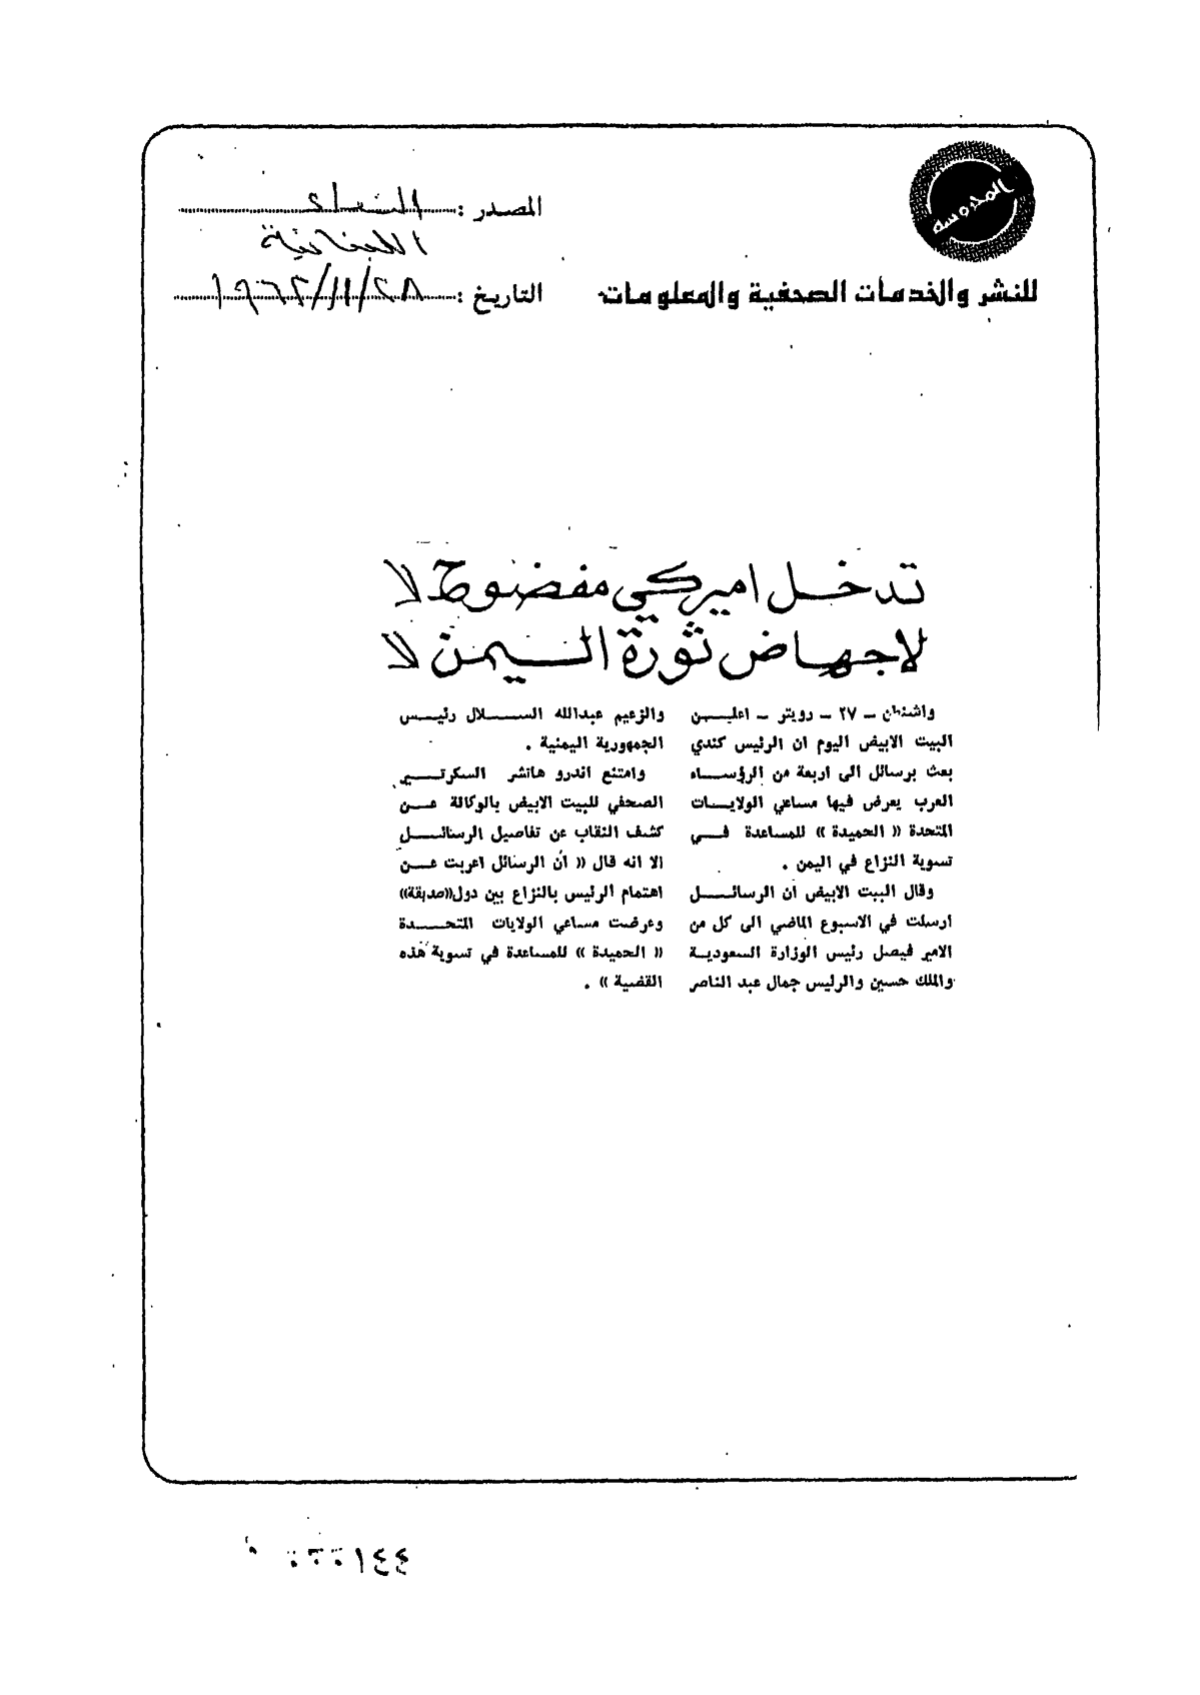 المحروسة
للنشر والخدمات الصحفية والمعلومات
المصدر :
اللبنانية
التاريخ : ١٩٦٢/١١/٢٨
تدخل اميركي مفضوح
لاجهاض ثورة اليمن
واشنطن – ٢٧ – رويتر – اعلن
البيت الابيض اليوم ان الرئيس كندي
بعث برسائل الى اربعة من الرؤساء
العرب يعرض فيها مساعي الولايات
المتحدة « الحميدة » للمساعدة في
تسوية النزاع في اليمن .
وقال البيت الابيض ان الرسائل
ارسلت في الاسبوع الماضي الى كل من
الامير فيصل رئيس الوزارة السعودية
والملك حسين والرئيس جمال عبد الناصر
والزعيم عبدالله السلال رئيس
الجمهورية اليمنية .
وامتنع اندرو هاتشر السكرتير
الصحفي للبيت الابيض بالوكالة عن
كشف النقاب عن تفاصيل الرسائل
الا انه قال « ان الرسائل اعربت عن
اهتمام الرئيس بالنزاع بين دول «صديقة»
وعرضت مساعي الولايات المتحدة
« الحميدة » للمساعدة في تسوية هذه
القضية » .